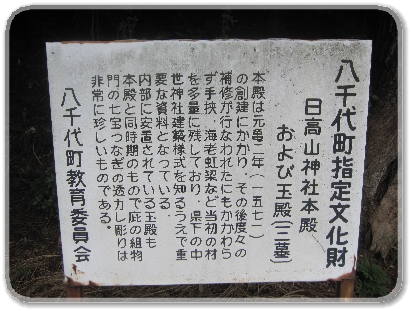 八千代町指定文化財
日高山神社本殿
および玉殿(三基)
本殿は元亀二年(一五七一)
の創建にかかり、その後度々の
補修が行なわれたにもかかわら
ず手挾、海老虹梁など当初の材
を多量に残しており、県下の中
世神社建築様式を知るうえで重
要な資料となっている。
内部に安置されている玉殿も
本殿と同時期のもので庇の組物
間の七宝つなぎの透かし彫りは
非常に珍しいものである。
八千代町教育委員会